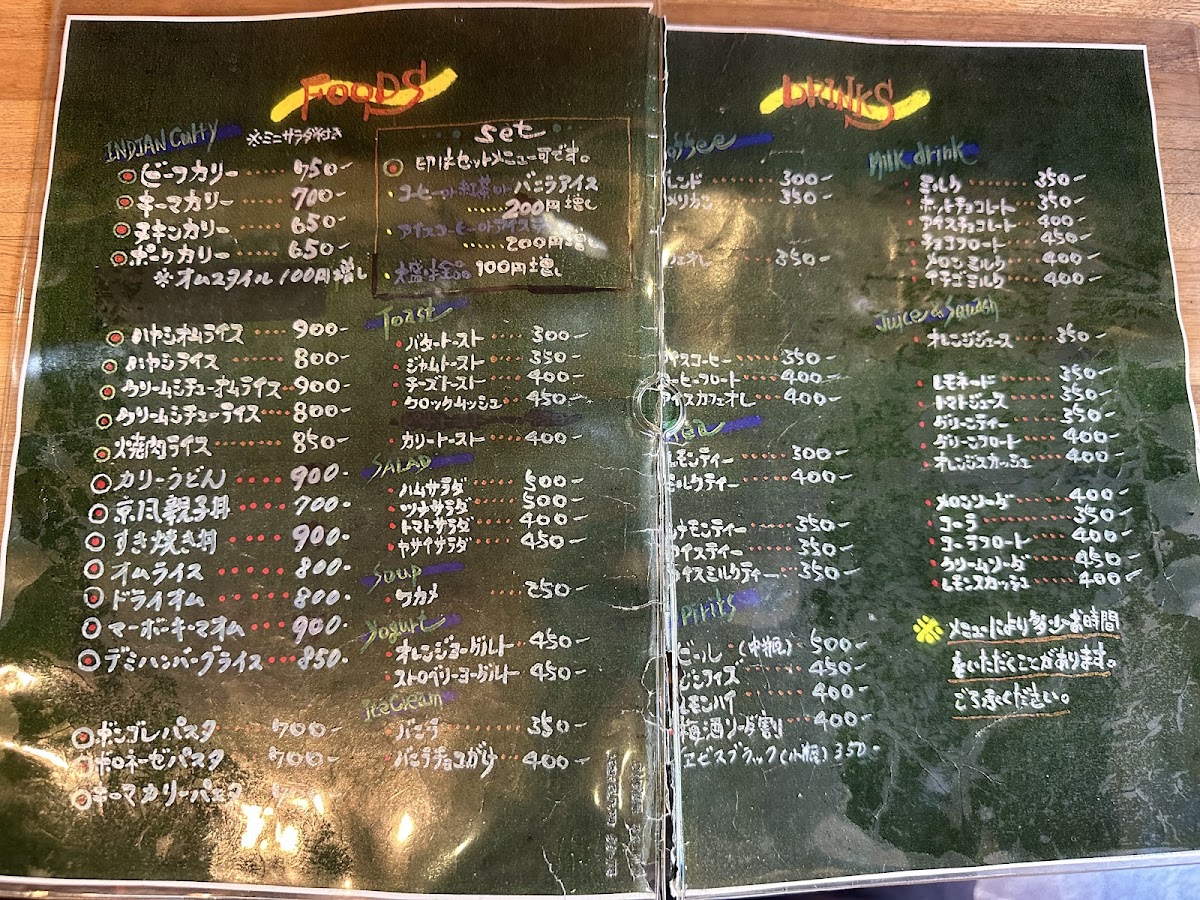 FOODS
INDIAN Curry ※ミニサラダ付き
ビーフカリー ····· 750-
キーマカリー ····· 700-
チキンカリー ····· 650-
ポークカリー ····· 650-
※オムスタイル 100円増し
ハヤシオムライス ···· 900-
ハヤシライス ···· 800-
クリームシチューオムライス·· 900-
クリームシチューライス ··· 800-
焼肉ライス ···· 850-
カリーうどん ··· 900-
京風親子丼 ···· 700-
すき焼き丼 ···· 900-
オムライス ····· 800-
ドライオム ····· 800-
マーボーキーマオム ··· 900-
デミハンバーグライス ··· 850-
ボンゴレパスタ 700-
ボロネーゼパスタ 700-
キーマカリーパスタ
Set
印はセットメニュー可です。
コーヒーor紅茶orバニラアイス
····· 200円増し
アイスコーヒーorアイスティ
····· 200円増し
大盛料金 100円増し
Toast
バタートースト ···· 300-
ジャムトースト ···· 350-
チーズトースト ···· 400-
クロックムッシュ ···· 450-
カリートースト ···· 400-
SALAD
ハムサラダ ····· 500-
ツナサラダ ····· 500-
トマトサラダ ···· 400-
ヤサイサラダ ···· 450-
Soup
ワカメ ···· 250-
Yogurt
オレンジヨーグルト ·· 450-
ストロベリーヨーグルト ·· 450-
Ice Cream
バニラ ····· 350-
バニラチョコがけ ··· 400-
DRINKS
レンド ······ 300-
メリカン ····· 350-
フェオレ ···· 350-
イスコーヒー ····· 350-
ーヒーフロート ···· 400-
アイスカフェオレ ··· 400-
Tea
レモンティー ···· 300-
ミルクティー ···· 400-
シナモンティー ···· 350-
アイスティー ····· 350-
アイスミルクティー ··· 350-
Spirits
ビール (中瓶) 500-
ジンフィズ ···· 450-
レモンハイ ···· 400-
梅酒ソーダ割 ··· 400-
エビスブラック(小瓶) 350-
Milk drink
ミルク ······· 350-
ホットチョコレート ·· 350-
アイスチョコレート ·· 400-
チョコフロート ···· 450-
メロンミルク ···· 400-
イチゴミルク ···· 400-
Juice & Squash
オレンジジュース ··· 350-
レモネード ····· 350-
トマトジュース ···· 350-
グリーンティー ···· 350-
グリーンフロート ··· 400-
オレンジスカッシュ ·· 400-
メロンソーダ ···· 400-
コーラ ······ 350-
コーラフロート ···· 400-
クリームソーダ ···· 450-
レモンスカッシュ ··· 400-
※メニューにより多少お時間
をいただくことがあります。
ご了承ください。